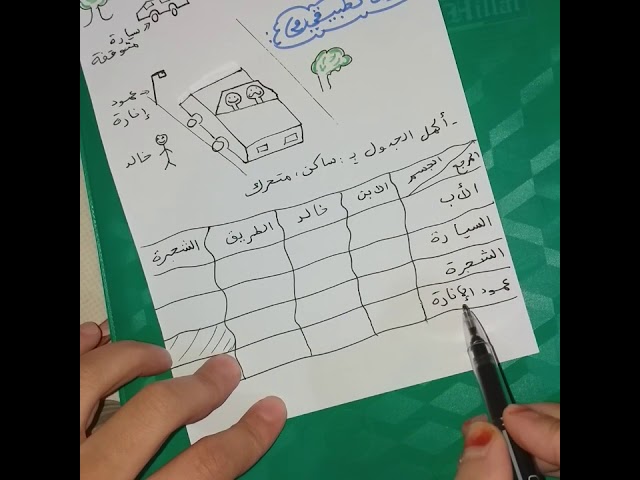 Hillal
سيارة
متوقفة
عمود
إنارة
خالد
- أكمل الجدول بـ: ساكن، متحرك
المرجع الجسم الابن خالد الطريق الشجرة
الأب
السيارة
الشجرة
عمود الإنارة